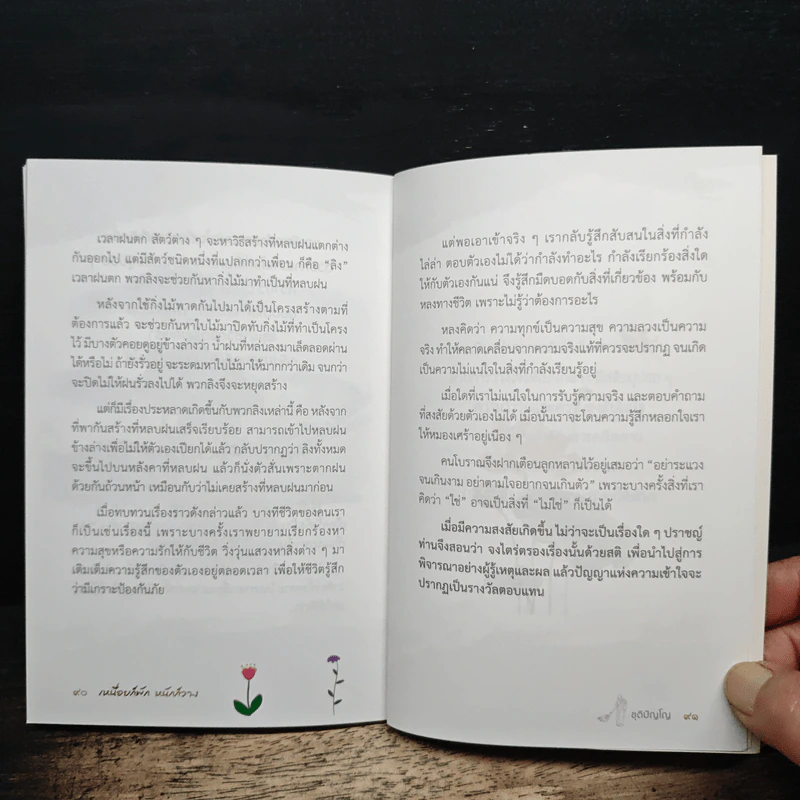 เวลาฝนตก สัตว์ต่าง ๆ จะหาวิธีสร้างที่หลบฝนแตกต่าง
กันออกไป แต่มีสัตว์ชนิดหนึ่งที่แปลกกว่าเพื่อน ก็คือ “ลิง”
เวลาฝนตก พวกลิงจะช่วยกันหากิ่งไม้มาทำเป็นที่หลบฝน
หลังจากใช้กิ่งไม้พาดกันไปมาได้เป็นโครงสร้างตามที่
ต้องการแล้ว จะช่วยกันหาใบไม้มาปิดทับกิ่งไม้ที่ทำเป็นโครง
ไว้ มีบางตัวคอยดูอยู่ข้างล่างว่า น้ำฝนที่หล่นลงมาเล็ดลอดผ่าน
ได้หรือไม่ ถ้ายังรั่วอยู่ จะระดมหาใบไม้มาให้มากกว่าเดิม จนกว่า
จะปิดไม่ให้ฝนรั่วลงไปได้ พวกลิงจึงจะหยุดสร้าง
แต่ก็มีเรื่องประหลาดเกิดขึ้นกับพวกลิงเหล่านี้ คือ หลังจาก
ที่พากันสร้างที่หลบฝนเสร็จเรียบร้อย สามารถเข้าไปหลบฝน
ข้างล่างเพื่อไม่ให้ตัวเองเปียกได้แล้ว กลับปรากฏว่า ลิงทั้งหมด
จะขึ้นไปบนหลังคาที่หลบฝน แล้วก็นั่งตัวสั่นเพราะตากฝน
ด้วยกันถ้วนหน้า เหมือนกับว่าไม่เคยสร้างที่หลบฝนมาก่อน
เมื่อทบทวนเรื่องราวดังกล่าวแล้ว บางทีชีวิตของคนเรา
ก็เป็นเช่นเรื่องนี้ เพราะบางครั้งเราพยายามเรียกร้องหา
ความสุขหรือความรักให้กับชีวิต วิ่งวุ่นแสวงหาสิ่งต่าง ๆ มา
เติมเต็มความรู้สึกของตัวเองอยู่ตลอดเวลา เพื่อให้ชีวิตรู้สึก
ว่ามีเกราะป้องกันภัย
๙๐ เหนื่อยก็พัก หนักก็วาง
แต่พอเอาเข้าจริง ๆ เรากลับรู้สึกสับสนในสิ่งที่กำลัง
ไล่ล่า ตอบตัวเองไม่ได้ว่ากำลังทำอะไร กำลังเรียกร้องสิ่งใด
ให้กับตัวเองกันแน่ จึงรู้สึกมืดบอดกับสิ่งที่เกี่ยวข้อง พร้อมกับ
หลงทางชีวิต เพราะไม่รู้ว่าต้องการอะไร
หลงคิดว่า ความทุกข์เป็นความสุข ความลวงเป็นความ
จริง ทำให้คลาดเคลื่อนจากความจริงแท้ที่ควรจะปรากฏ จนเกิด
เป็นความไม่แน่ใจในสิ่งที่กำลังเรียนรู้อยู่
เมื่อใดที่เราไม่แน่ใจในการรับรู้ความจริง และตอบคำถาม
ที่สงสัยด้วยตัวเองไม่ได้ เมื่อนั้นเราจะโดนความรู้สึกหลอกใจเรา
ให้หมองเศร้าอยู่เนือง ๆ
คนโบราณจึงฝากเตือนลูกหลานไว้อยู่เสมอว่า “อย่าระแวง
จนเกินงาม อย่าตามใจอยากจนเกินตัว” เพราะบางครั้งสิ่งที่เรา
คิดว่า “ใช่” อาจเป็นสิ่งที่ “ไม่ใช่” ก็เป็นได้
เมื่อมีความสงสัยเกิดขึ้น ไม่ว่าจะเป็นเรื่องใด ๆ ปราชญ์
ท่านจึงสอนว่า จงไตร่ตรองเรื่องนั้นด้วยสติ เพื่อนำไปสู่การ
พิจารณาอย่างผู้รู้เหตุและผล แล้วปัญญาแห่งความเข้าใจจะ
ปรากฏเป็นรางวัลตอบแทน
ชุติปัญโญ ๙๑